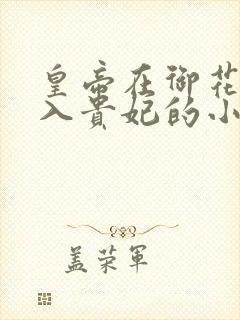 皇帝在御花
入贵妃的小
盖荣军